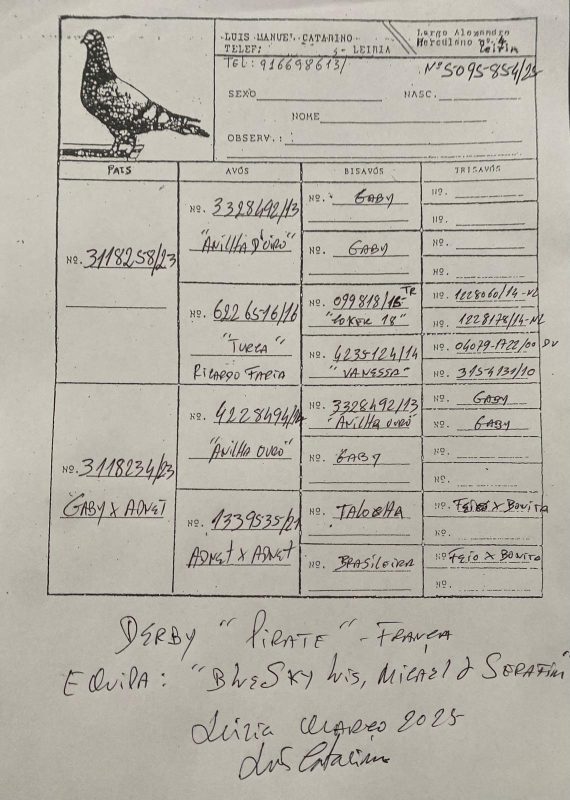 LUIS MANUEL CATARINO
TELEF: - LEIRIA
Largo Alexandre
Herculano nº 4
Leiria
TEL: 916698613/
Nº 5095-854/25
SEXO NASC.
NOME
OBSERV.:
PAIS AVÓS BISAVÓS TRISAVÓS
Nº. 3118258/23
Nº. 3328492/13
"ANILHA D'OURO"
Nº. 6226516/16
"TURCA"
RICARDO FARIA
Nº. GABY
Nº. GABY
Nº. 099818/15 TR
"LOXER 18"
Nº. 4235124/14
"VANESSA"
Nº.
Nº.
Nº.
Nº.
Nº. 1228060/14-NL
Nº. 1228178/14-NL
Nº. 04079-1722/00 DV
Nº. 3154131/10
Nº. 3118234/23
GABY X ADNET
Nº. 4228494/14
"ANILHA OURO"
Nº. 1339535/21
ADNET X ADNET
Nº. 3328492/13
"ANILHA OURO"
Nº. GABY
Nº. TALOCHA
Nº. BRASILEIRA
Nº. GABY
Nº. GABY
Nº.
Nº.
Nº. FEIO X BONITA
Nº.
Nº. FEIO X BONITA
Nº.
DERBY "PIRATE" - FRANÇA
EQUIPA: "BLUESKY LUIS, MICAEL & SERAFIM"
Leiria MARÇO 2025
Luis Catarino